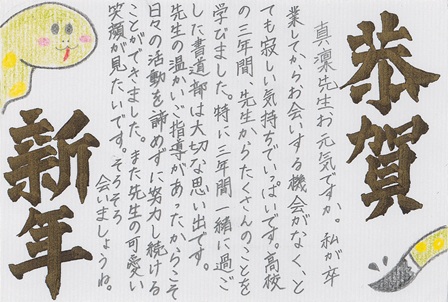 恭賀
真凛先生お元気ですか。私が卒
業してからお会いする機会がなく、と
ても寂しい気持ちでいっぱいです。高校
の三年間、先生からたくさんのことを
学びました。特に三年間一緒に過ご
した書道部は大切な思い出です。
先生の温かいご指導があったからこそ
日々の活動を諦めずに努力し続ける
ことができました。また先生の可愛い
笑顔が見たいです。そろそろ
会いましょうね。
新年